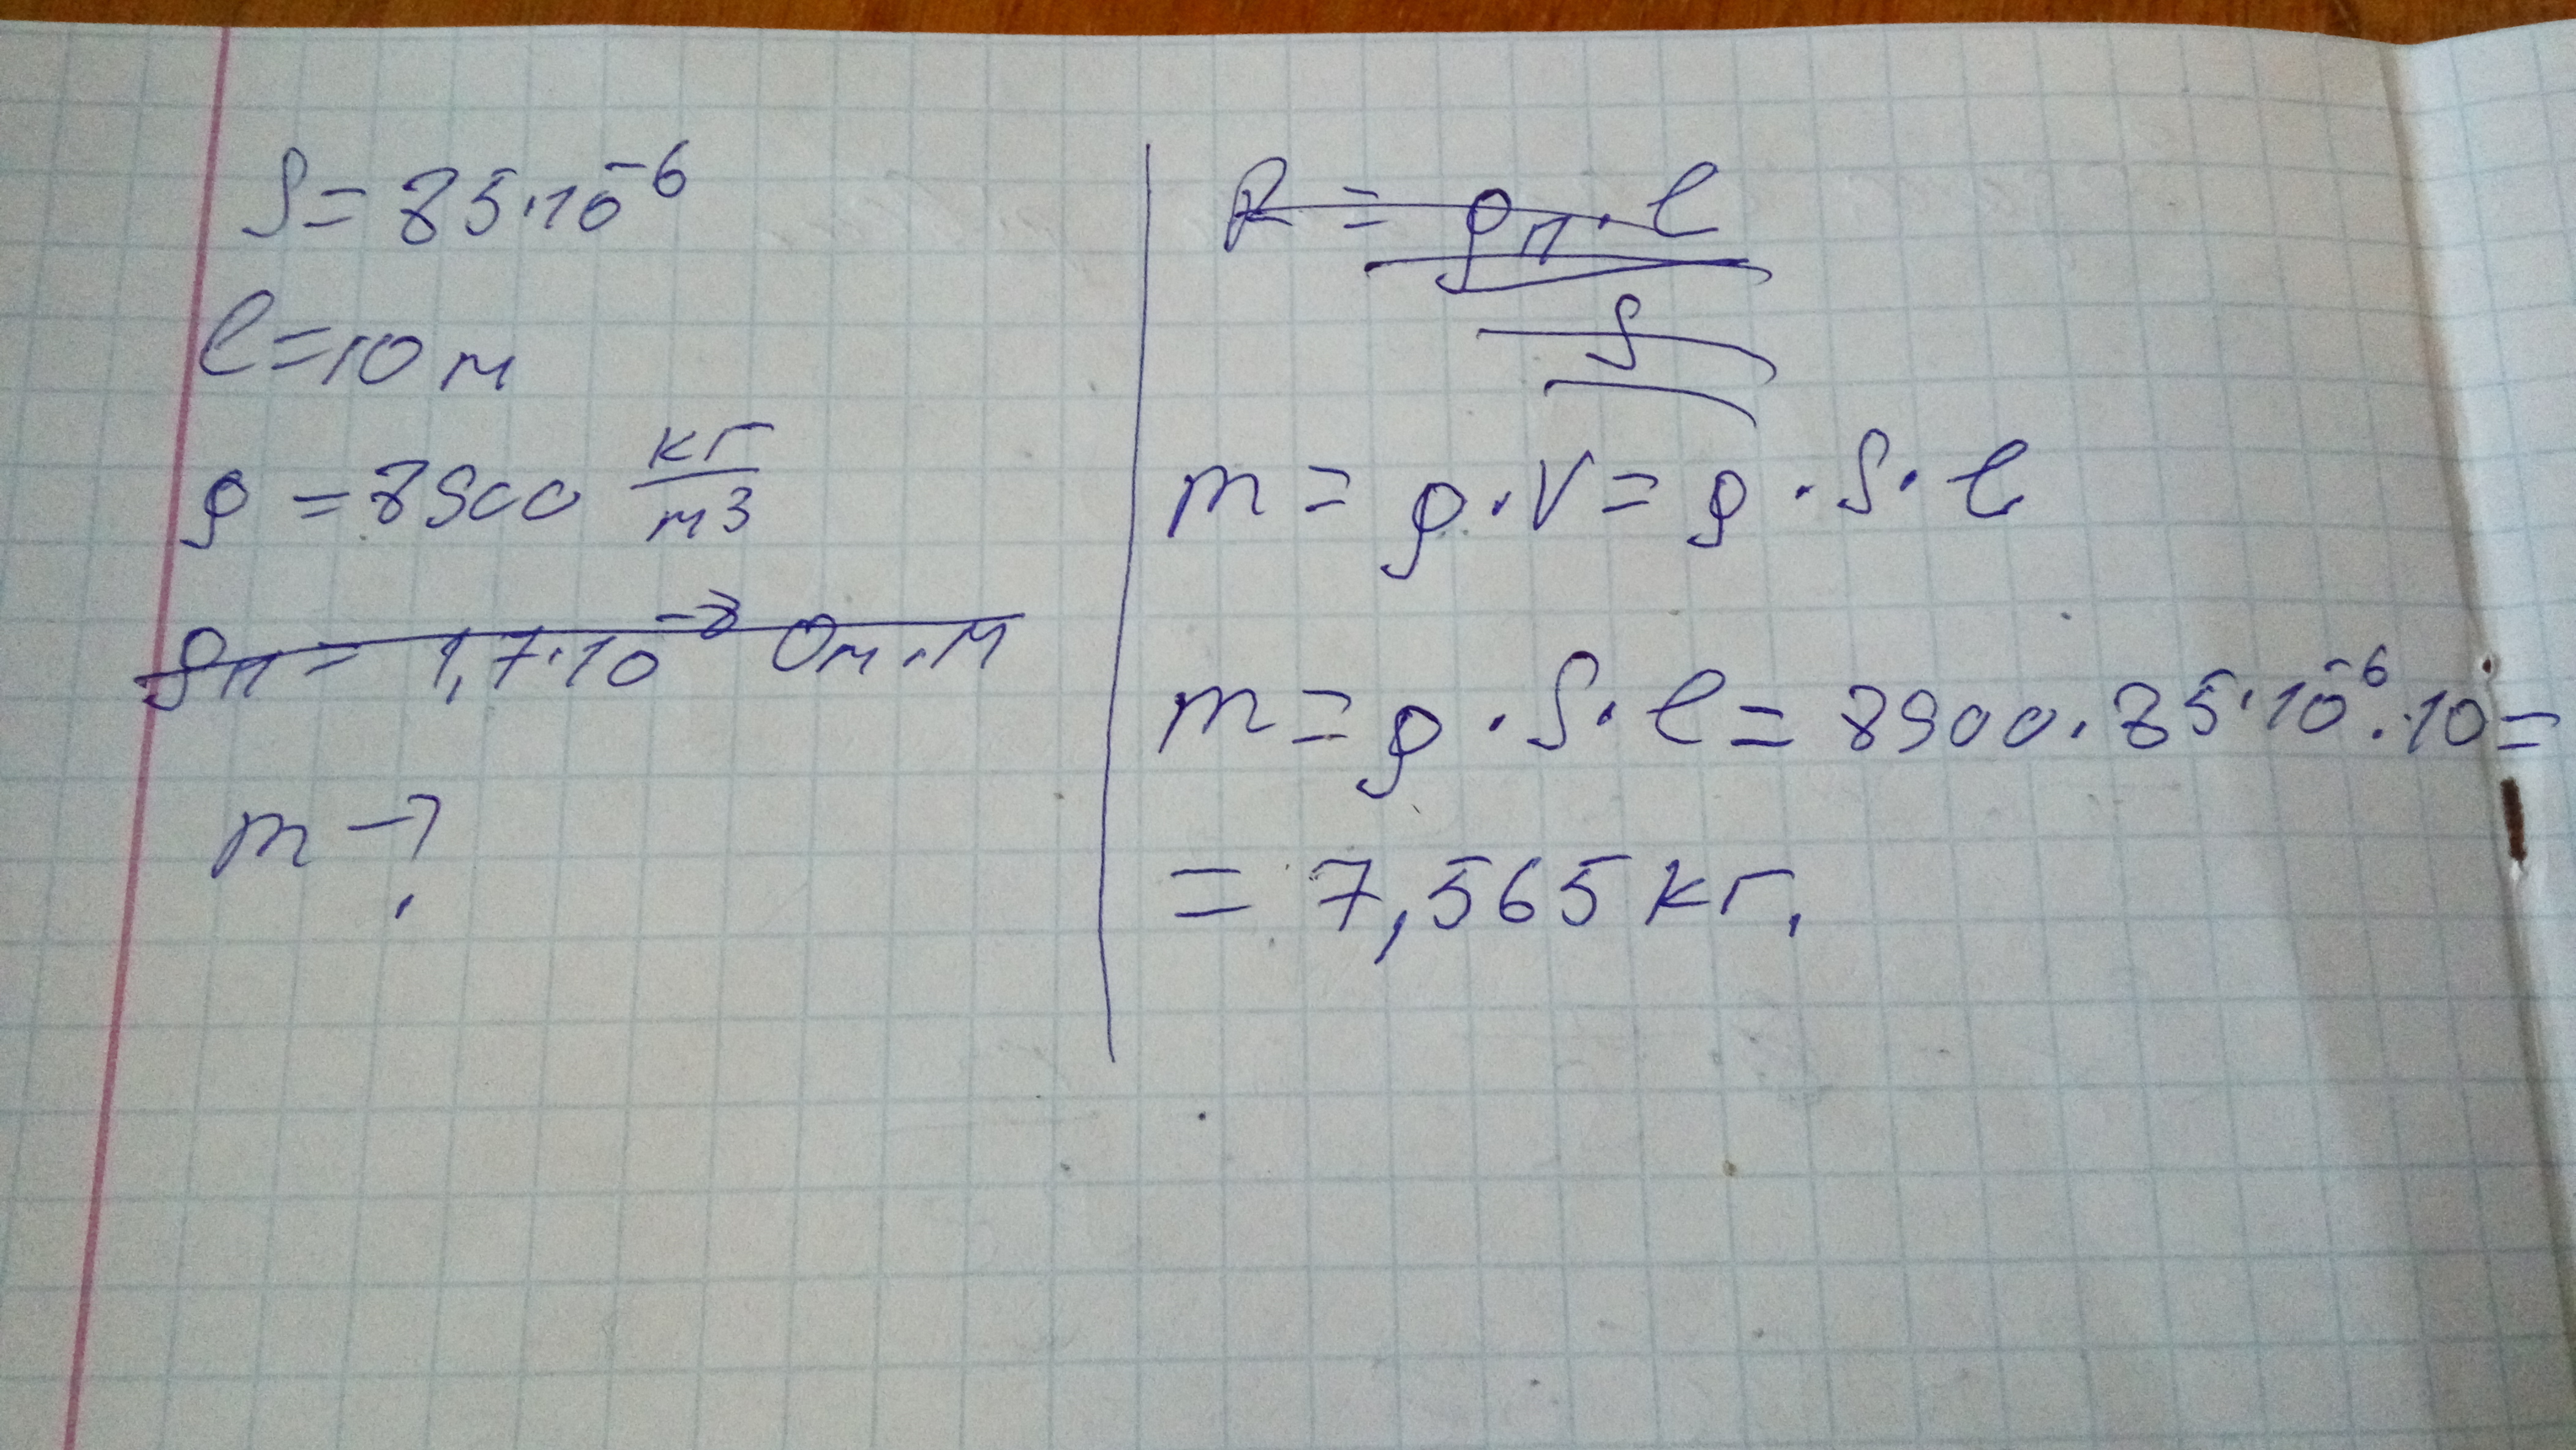 S = 85·10⁻⁶
l = 10 м
ρ = 8900 кг/м3
ρп = 1,7·10⁻⁸ Ом·м
m - ?
R = ρп·l / S
m = ρ·V = ρ·S·l
m = ρ·S·l = 8900·85·10⁻⁶·10 =
= 7,565 кг.